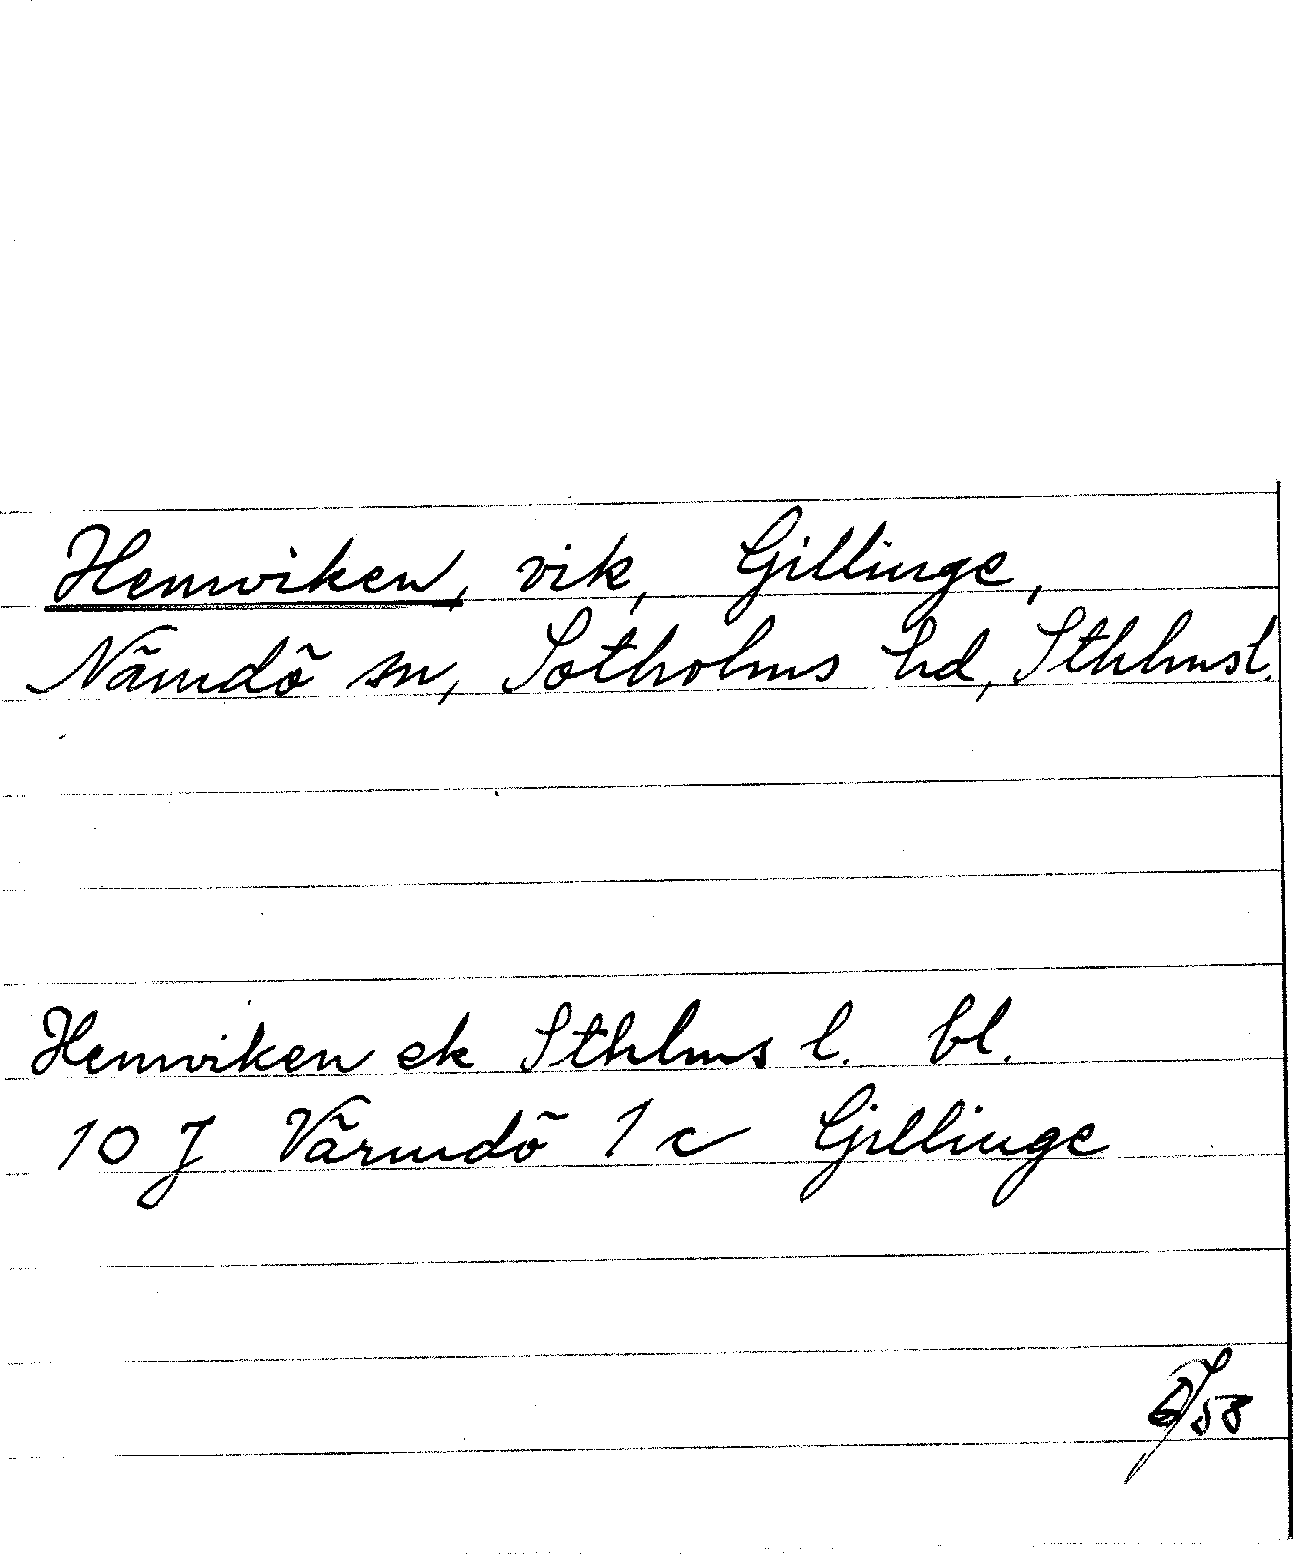 Hemviken, vik, Gillinge,
Nämdö sn, Sotholms hd, Sthlmsl.
Hemviken ek Sthlms l. bl.
10 J Värmdö 1 c Gillinge
58